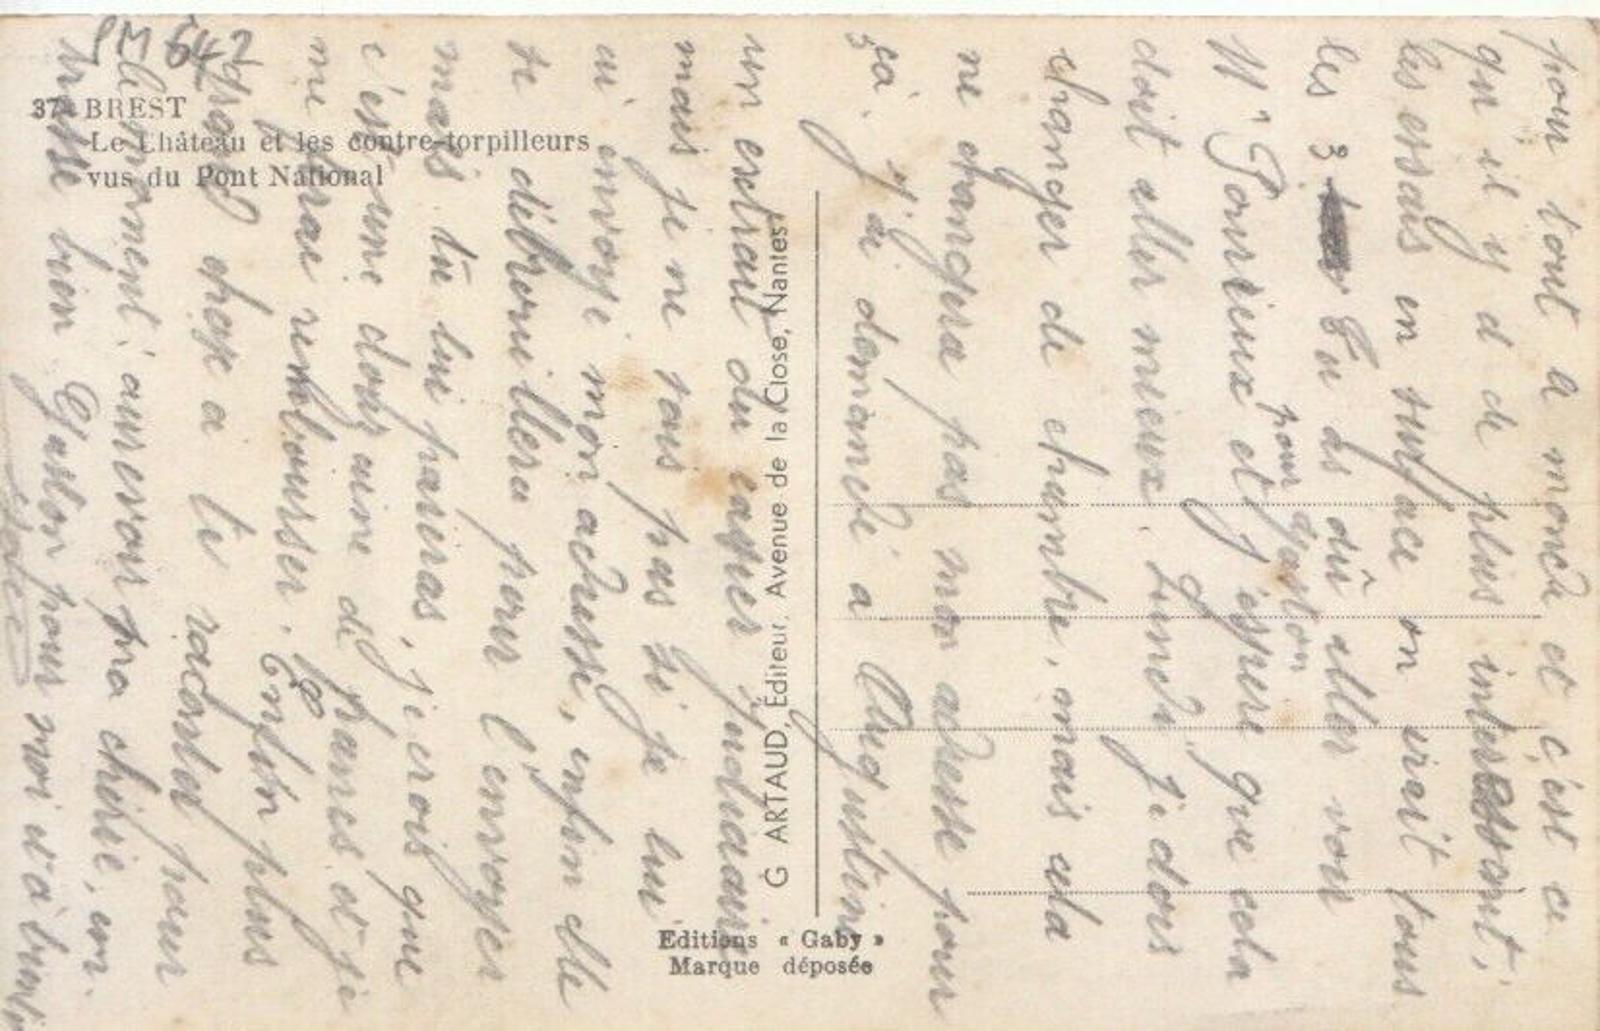 PM 642
37 - BREST
Le Château et les contre-torpilleurs
vus du Pont National
G. ARTAUD, Éditeur, Avenue de la Close, Nantes
Editions « Gaby »
Marque déposée
pour tout a monde et c'est ce
qu il y a de plus intéressant,
les essais en surface on virait tous
les 3 Tu as dû aller voir
pour Gaston
Mr et j'espère que cela
doit aller mieux. Lundi je dois
changer de chambre, mais cela
ne changera pas mon adresse pour
ça. J'ai demandé a Augustine
un extrait du casier judiciaire
mais je ne sais pas si je lui
ai envoyé mon adresse, enfin elle
se débrouillera pour l'envoyer
mais tu lui paieras, je crois que
c'est une douzaine de francs et je
me ferai rembourser. Enfin plus
grand chose a te raconter pour
le moment, au revoir ma chérie, em-
brasse bien Gaston pour moi et à bientôt